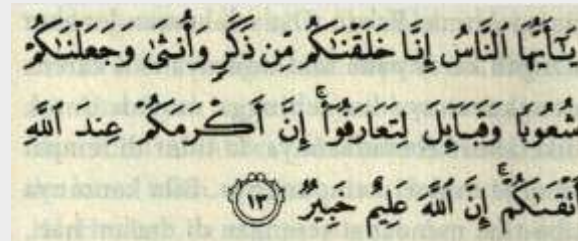 يَـٰٓأَيُّهَا ٱلنَّاسُ إِنَّا خَلَقْنَـٰكُم مِّن ذَكَرٍ وَأُنثَىٰ وَجَعَلْنَـٰكُمْ
شُعُوبًا وَقَبَآئِلَ لِتَعَارَفُوٓا۟ ۚ إِنَّ أَكْرَمَكُمْ عِندَ ٱللَّهِ
أَتْقَىٰكُمْ ۚ إِنَّ ٱللَّهَ عَلِيمٌ خَبِيرٌ ١٣